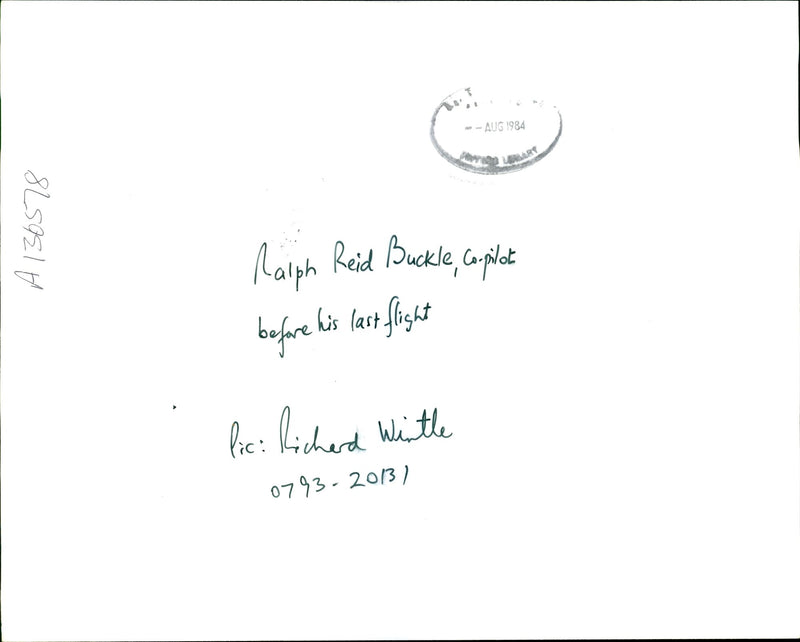 -- AUG 1984
LIBRARY
A136578
Ralph Reid Buckle, Co-pilot
before his last flight
Pic: Richard Wintle
0793-20131